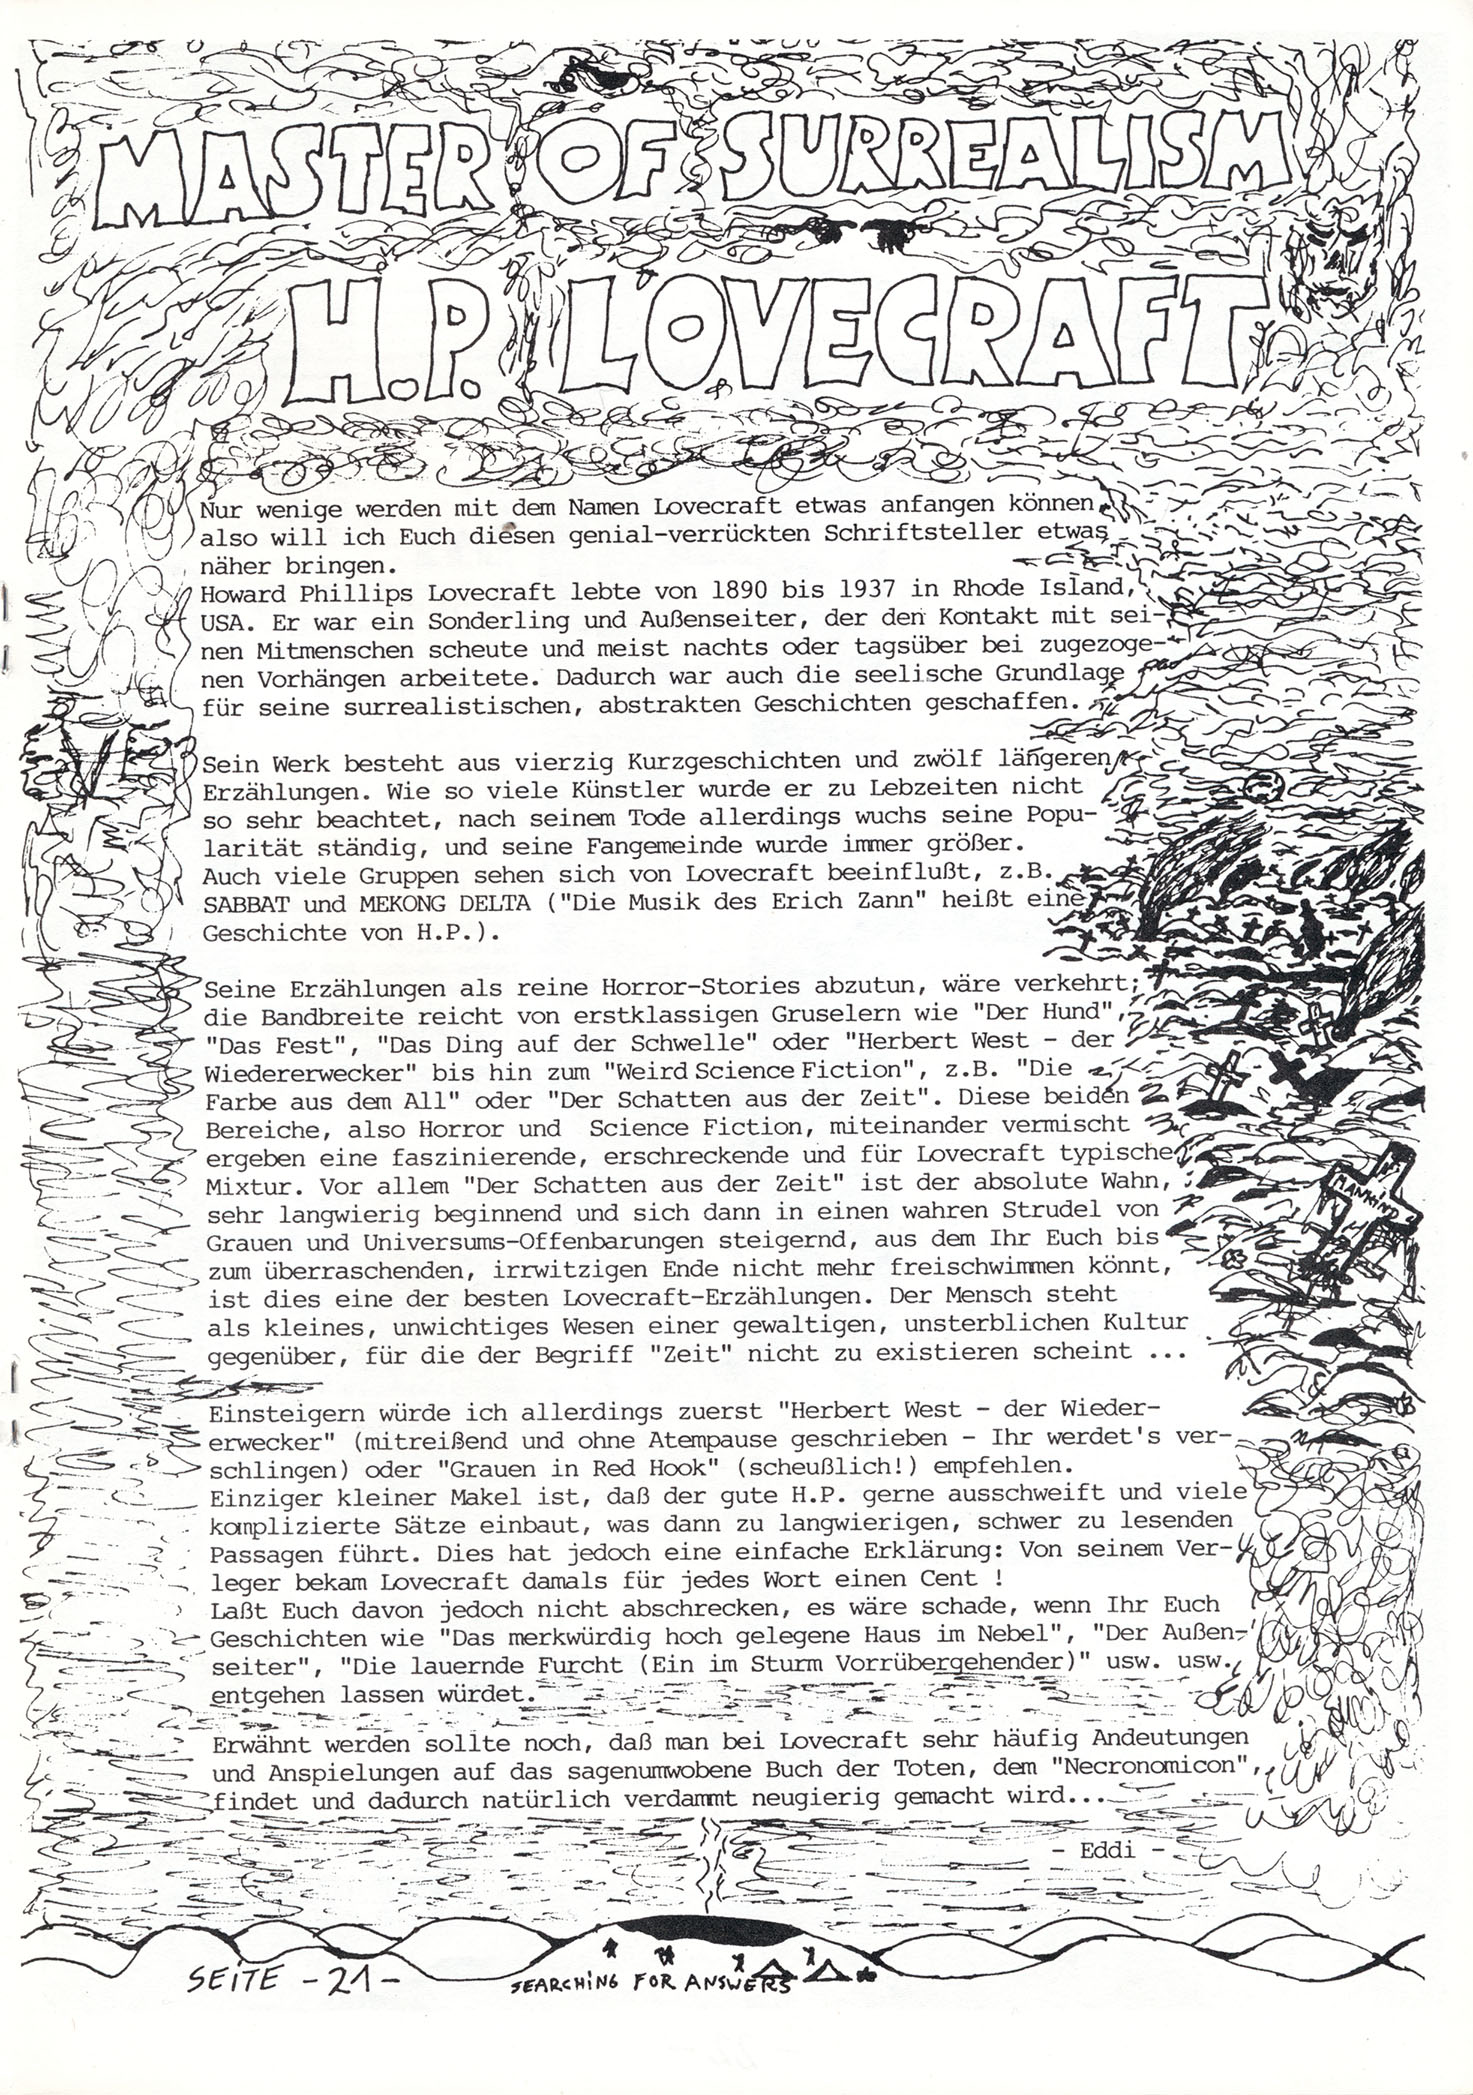 MASTER OF SURREALISM
H.P. LOVECRAFT
Nur wenige werden mit dem Namen Lovecraft etwas anfangen können,
also will ich Euch diesen genial-verrückten Schriftsteller etwas
näher bringen.
Howard Phillips Lovecraft lebte von 1890 bis 1937 in Rhode Island,
USA. Er war ein Sonderling und Außenseiter, der den Kontakt mit sei-
nen Mitmenschen scheute und meist nachts oder tagsüber bei zugezoge-
nen Vorhängen arbeitete. Dadurch war auch die seelische Grundlage
für seine surrealistischen, abstrakten Geschichten geschaffen.
Sein Werk besteht aus vierzig Kurzgeschichten und zwölf längeren
Erzählungen. Wie so viele Künstler wurde er zu Lebzeiten nicht
so sehr beachtet, nach seinem Tode allerdings wuchs seine Popu-
larität ständig, und seine Fangemeinde wurde immer größer.
Auch viele Gruppen sehen sich von Lovecraft beeinflußt, z.B.
SABBAT und MEKONG DELTA ("Die Musik des Erich Zann" heißt eine
Geschichte von H.P.).
Seine Erzählungen als reine Horror-Stories abzutun, wäre verkehrt;
die Bandbreite reicht von erstklassigen Gruselern wie "Der Hund",
"Das Fest", "Das Ding auf der Schwelle" oder "Herbert West - der
Wiedererwecker" bis hin zum "Weird Science Fiction", z.B. "Die
Farbe aus dem All" oder "Der Schatten aus der Zeit". Diese beiden
Bereiche, also Horror und Science Fiction, miteinander vermischt
ergeben eine faszinierende, erschreckende und für Lovecraft typische
Mixtur. Vor allem "Der Schatten aus der Zeit" ist der absolute Wahn,
sehr langwierig beginnend und sich dann in einen wahren Strudel von
Grauen und Universums-Offenbarungen steigernd, aus dem Ihr Euch bis
zum überraschenden, irrwitzigen Ende nicht mehr freischwimmen könnt,
ist dies eine der besten Lovecraft-Erzählungen. Der Mensch steht
als kleines, unwichtiges Wesen einer gewaltigen, unsterblichen Kultur
gegenüber, für die der Begriff "Zeit" nicht zu existieren scheint ...
MANKIND
Einsteigern würde ich allerdings zuerst "Herbert West - der Wieder-
erwecker" (mitreißend und ohne Atempause geschrieben - Ihr werdet's ver-
schlingen) oder "Grauen in Red Hook" (scheußlich!) empfehlen.
Einziger kleiner Makel ist, daß der gute H.P. gerne ausschweift und viele
komplizierte Sätze einbaut, was dann zu langwierigen, schwer zu lesenden
Passagen führt. Dies hat jedoch eine einfache Erklärung: Von seinem Ver-
leger bekam Lovecraft damals für jedes Wort einen Cent !
Laßt Euch davon jedoch nicht abschrecken, es wäre schade, wenn Ihr Euch
Geschichten wie "Das merkwürdig hoch gelegene Haus im Nebel", "Der Außen-
seiter", "Die lauernde Furcht (Ein im Sturm Vorrübergehender)" usw. usw.
entgehen lassen würdet.
Erwähnt werden sollte noch, daß man bei Lovecraft sehr häufig Andeutungen
und Anspielungen auf das sagenumwobene Buch der Toten, dem "Necronomicon",
findet und dadurch natürlich verdammt neugierig gemacht wird...
- Eddi -
SEITE - 21 -
SEARCHING FOR ANSWERS